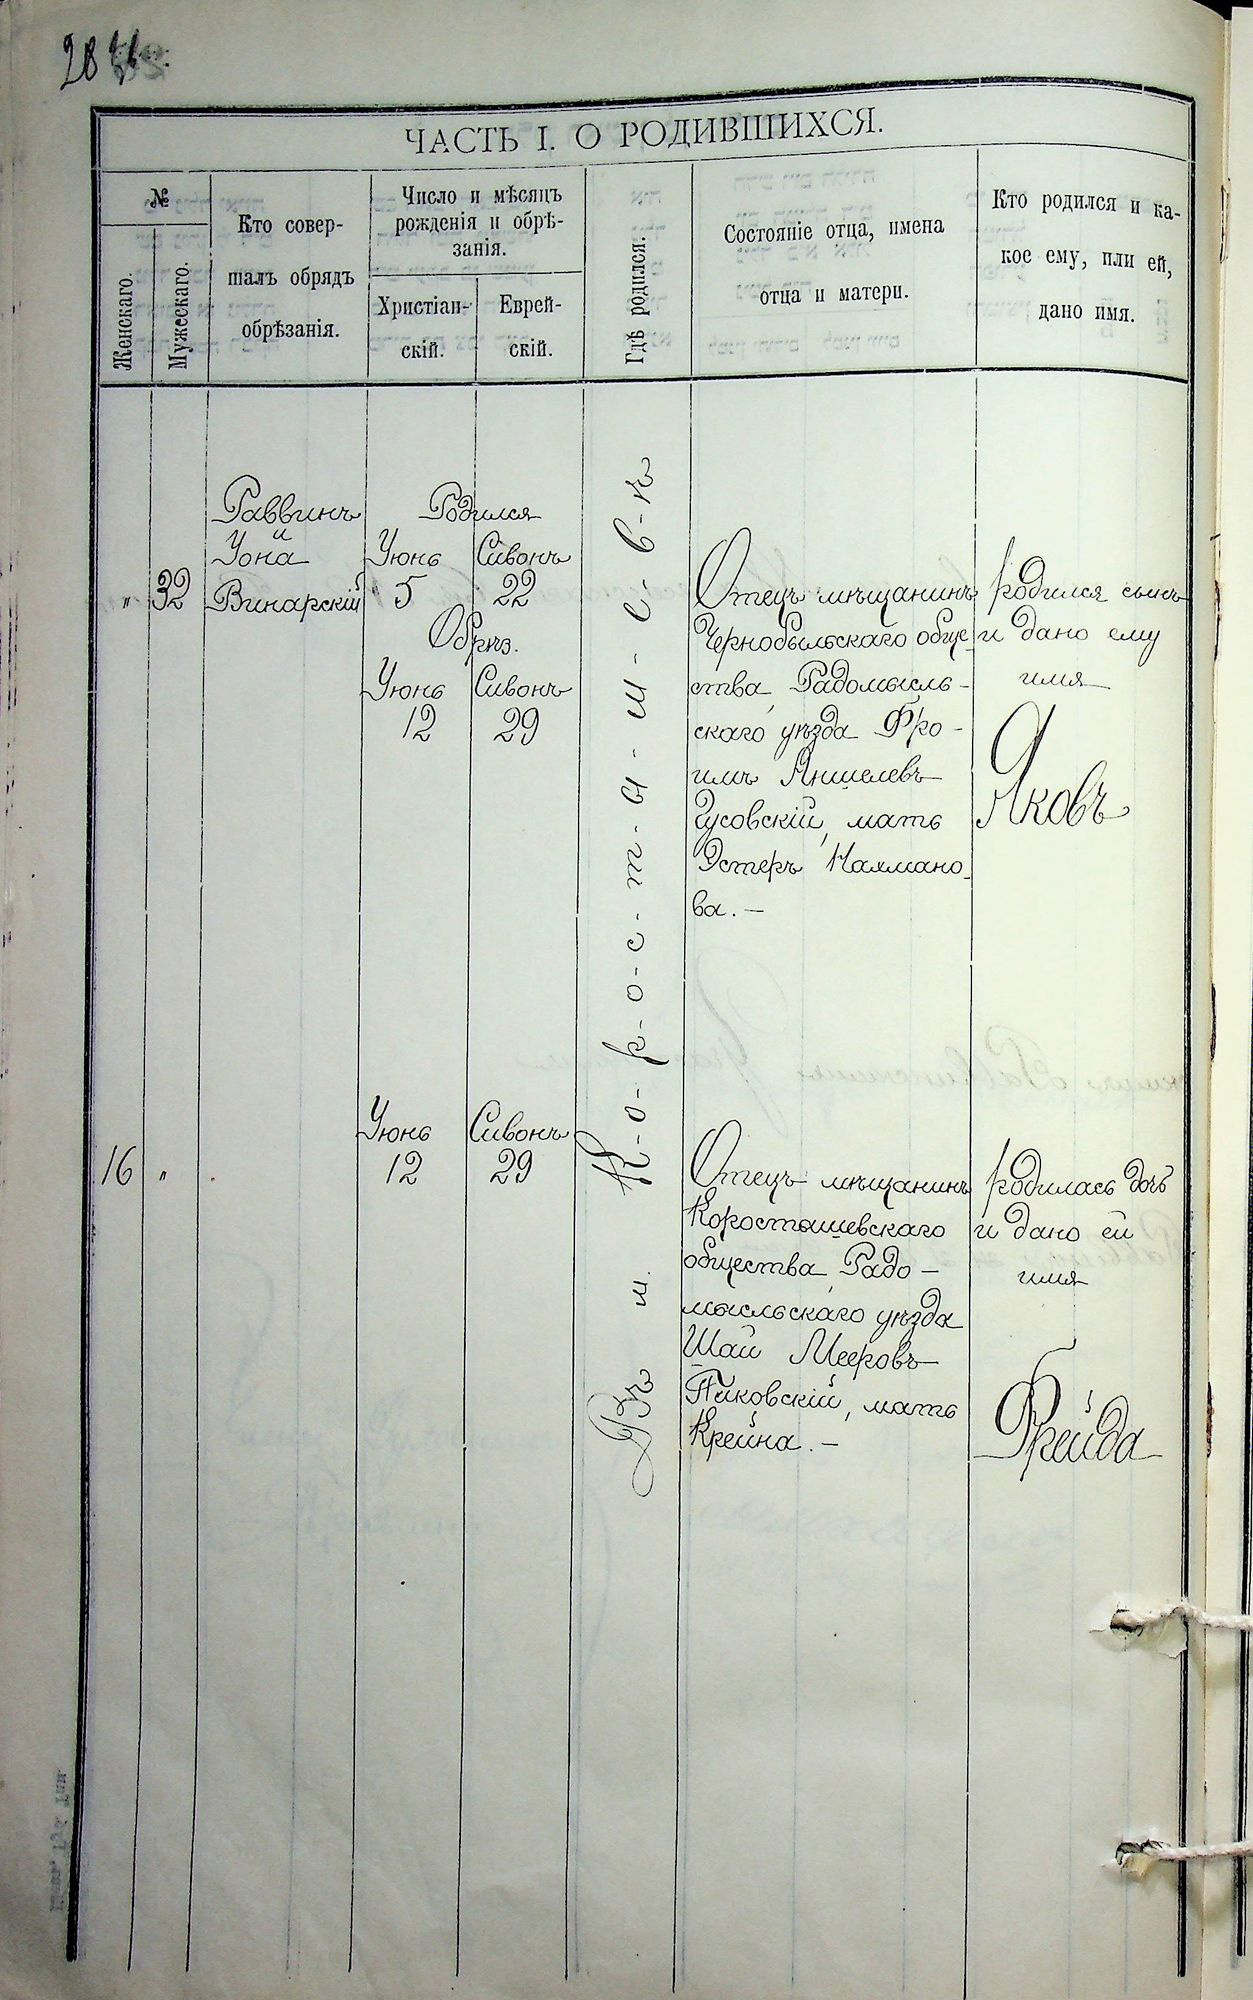 ЧАСТЬ I. О РОДИВШИХСЯ.
№
Женскаго.
Мужескаго.
Кто совер-
шалъ обрядъ
обрѣзанія.
Число и мѣсяцъ
рожденія и обрѣ-
занія.
Христіан-
скій.
Еврей-
скій.
Гдѣ родился.
Состояніе отца, имена
отца и матери.
Кто родился и ка-
кое ему, или ей,
дано имя.
" 32
Раввинъ
Iона
Винарскій
Родился
Іюнь Сивонъ
5 22
Обрѣз.
Іюнь Сивонъ
12 29
Въ м. К-о-р-о-с-т-ы-ш-е-в-ѣ
Отецъ мѣщанинъ
Чернобыльскаго обще-
ства Радомысль-
скаго уѣзда Фро-
имъ Аншелевъ
Гусовскій, мать
Эстеръ Нахмано-
ва. —
родился сынъ
и дано ему
имя
Яковъ
16 "
Іюнь Сивонъ
12 29
Отецъ мѣщанинъ
Коростышевскаго
общества Радо-
мысльскаго уѣзда
Шаи Мееровъ
Пиковскій, мать
Крейна. —
родилась дочь
и дано ей
имя
Фрейда